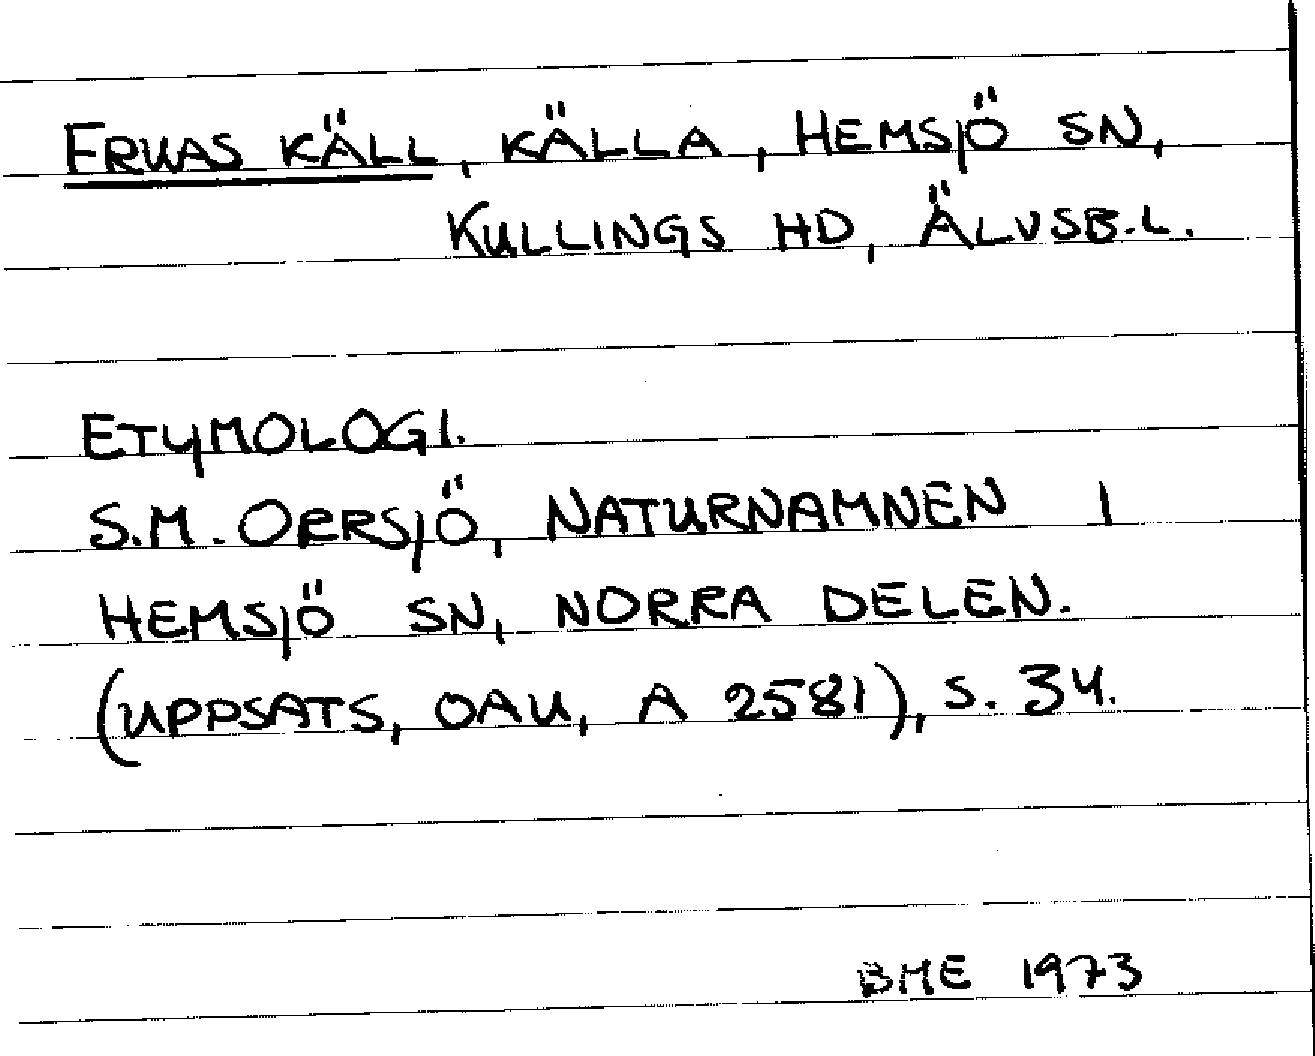 FRUAS KÄLL, KÄLLA, HEMSJÖ SN,
KULLINGS HD, ÄLVSB.L.
ETYMOLOGI.
S.M. ORRSJÖ, NATURNAMNEN I
HEMSJÖ SN, NORRA DELEN.
(UPPSATS, OAU, A 2581), S. 34.
BME 1973